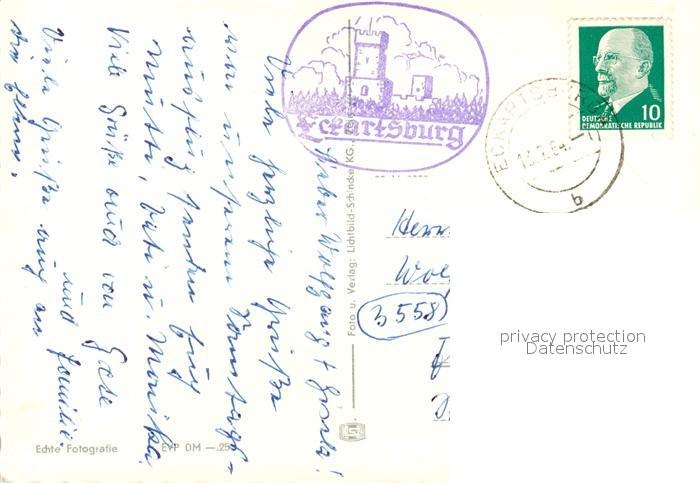 Lieber Wolfgang + Gisela!
Viele herzliche Grüße
von unserem Sonntags-
ausflug senden Euch
Mutti, Vati u. Monika.
Viele Grüße auch von
Viele Grüße auch an
und Familie.
die Eltern.
Eckartsburg
ECKARTSBERGA
b
DEUTSCHE
DEMOKRATISCHE REPUBLIK
10
Herrn
3558
Foto u. Verlag: Lichtbild-Schincke KG.
privacy protection
Datenschutz
Echte Fotografie
EVP DM —.25